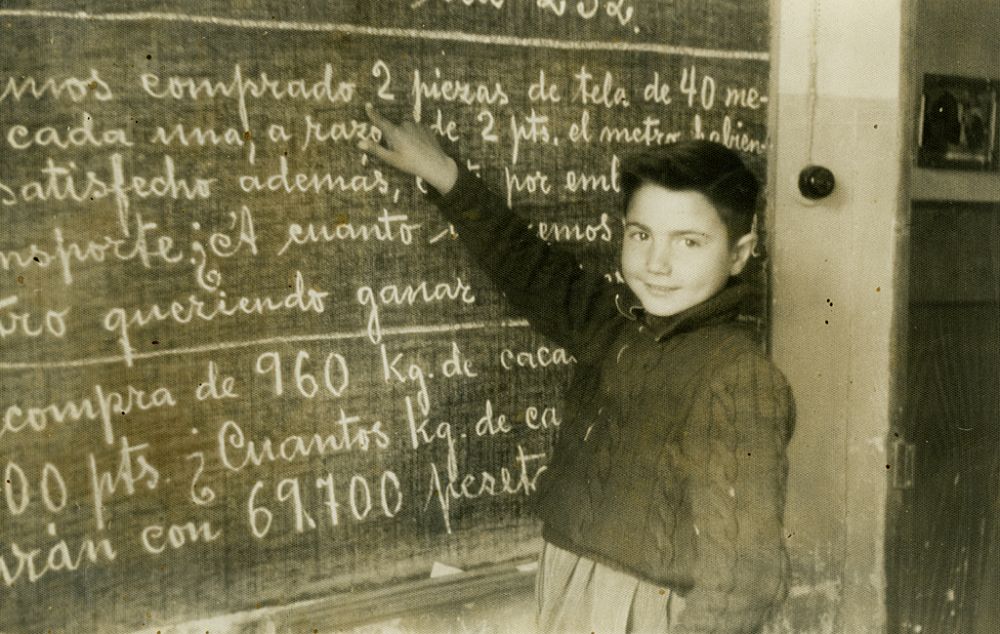 232.
mos comprado 2 piezas de tela de 40 me-
cada una, a razó de 2 pts. el metro habien-
satisfecho además, por emb
nsporte. ¿A cuanto emos
tro queriendo ganar
compra de 960 Kg. de caca
00 pts. ¿Cuantos kg. de ca
arán con 69.700 peset